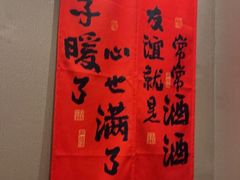 子暖了
心也满了
友谊就是
常常酒酒